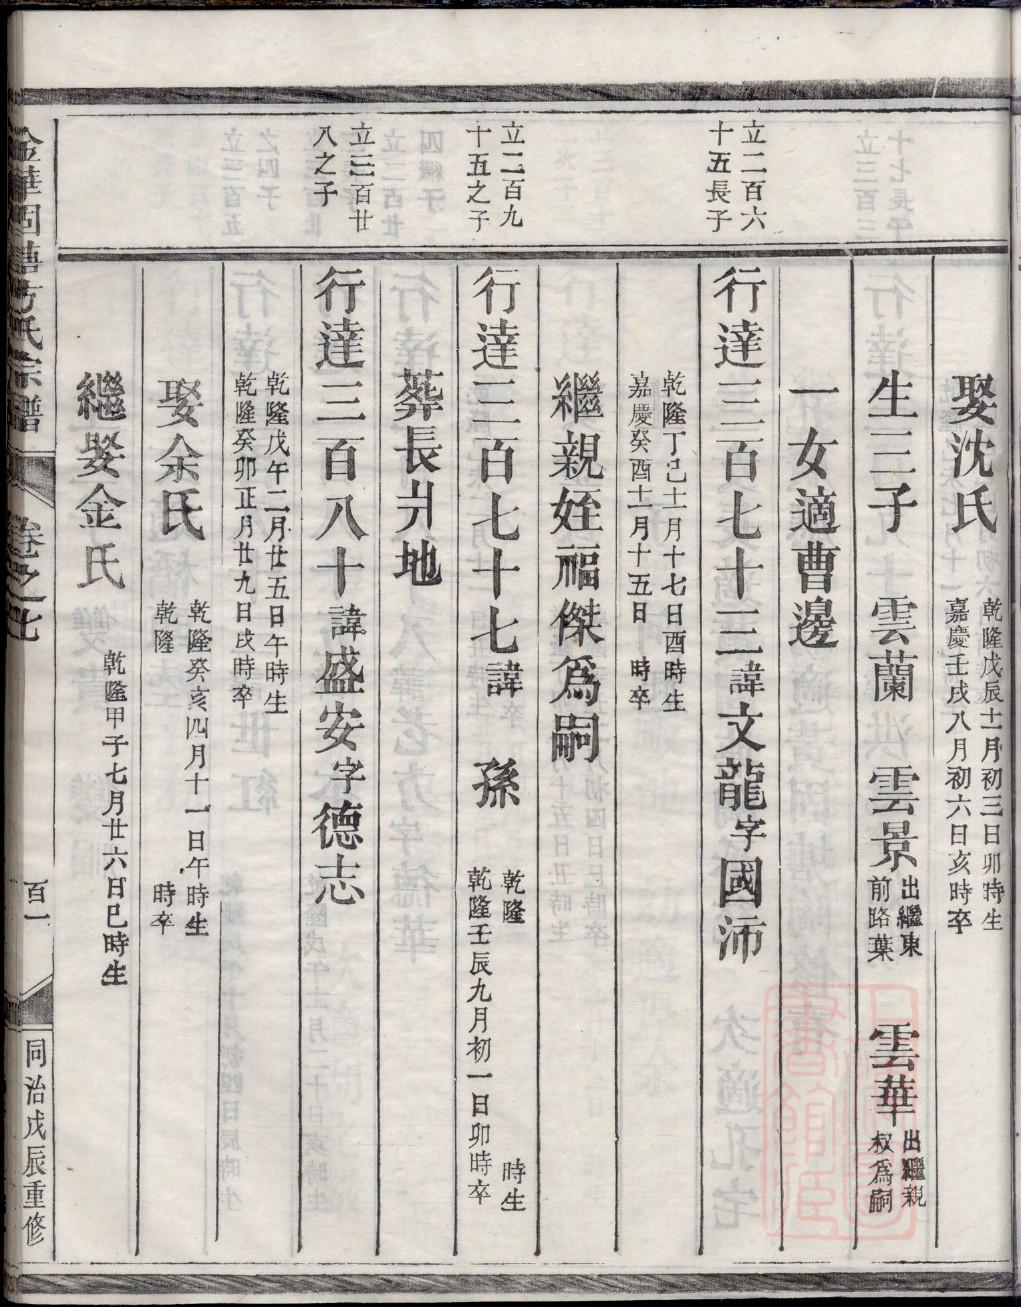 娶沈氏 乾隆戊辰十一月初三日卯時生 嘉慶壬戌八月初六日亥時卒
生三子 雲蘭 雲景 出繼東前路葉 雲華 出繼親叔為嗣
一女適曹邊
立二百六十五長子
行達三百七十三諱文龍字國沛
乾隆丁己十一月十七日酉時生
嘉慶癸酉十一月十五日 時卒
繼親姪福傑爲嗣
立二百九十五之子
行達三百七十七諱 孫 乾隆 時生 乾隆壬辰九月初一日卯時卒
葬長爿地
立三百廿八之子
行達三百八十諱盛安字德志
乾隆戊午二月廿五日午時生
乾隆癸卯正月廿九日戌時卒
娶余氏 乾隆癸亥四月十一日午時生 乾隆 時卒
繼娶金氏 乾隆甲子七月廿六日巳時生
卷之七
百一
同治戊辰重修